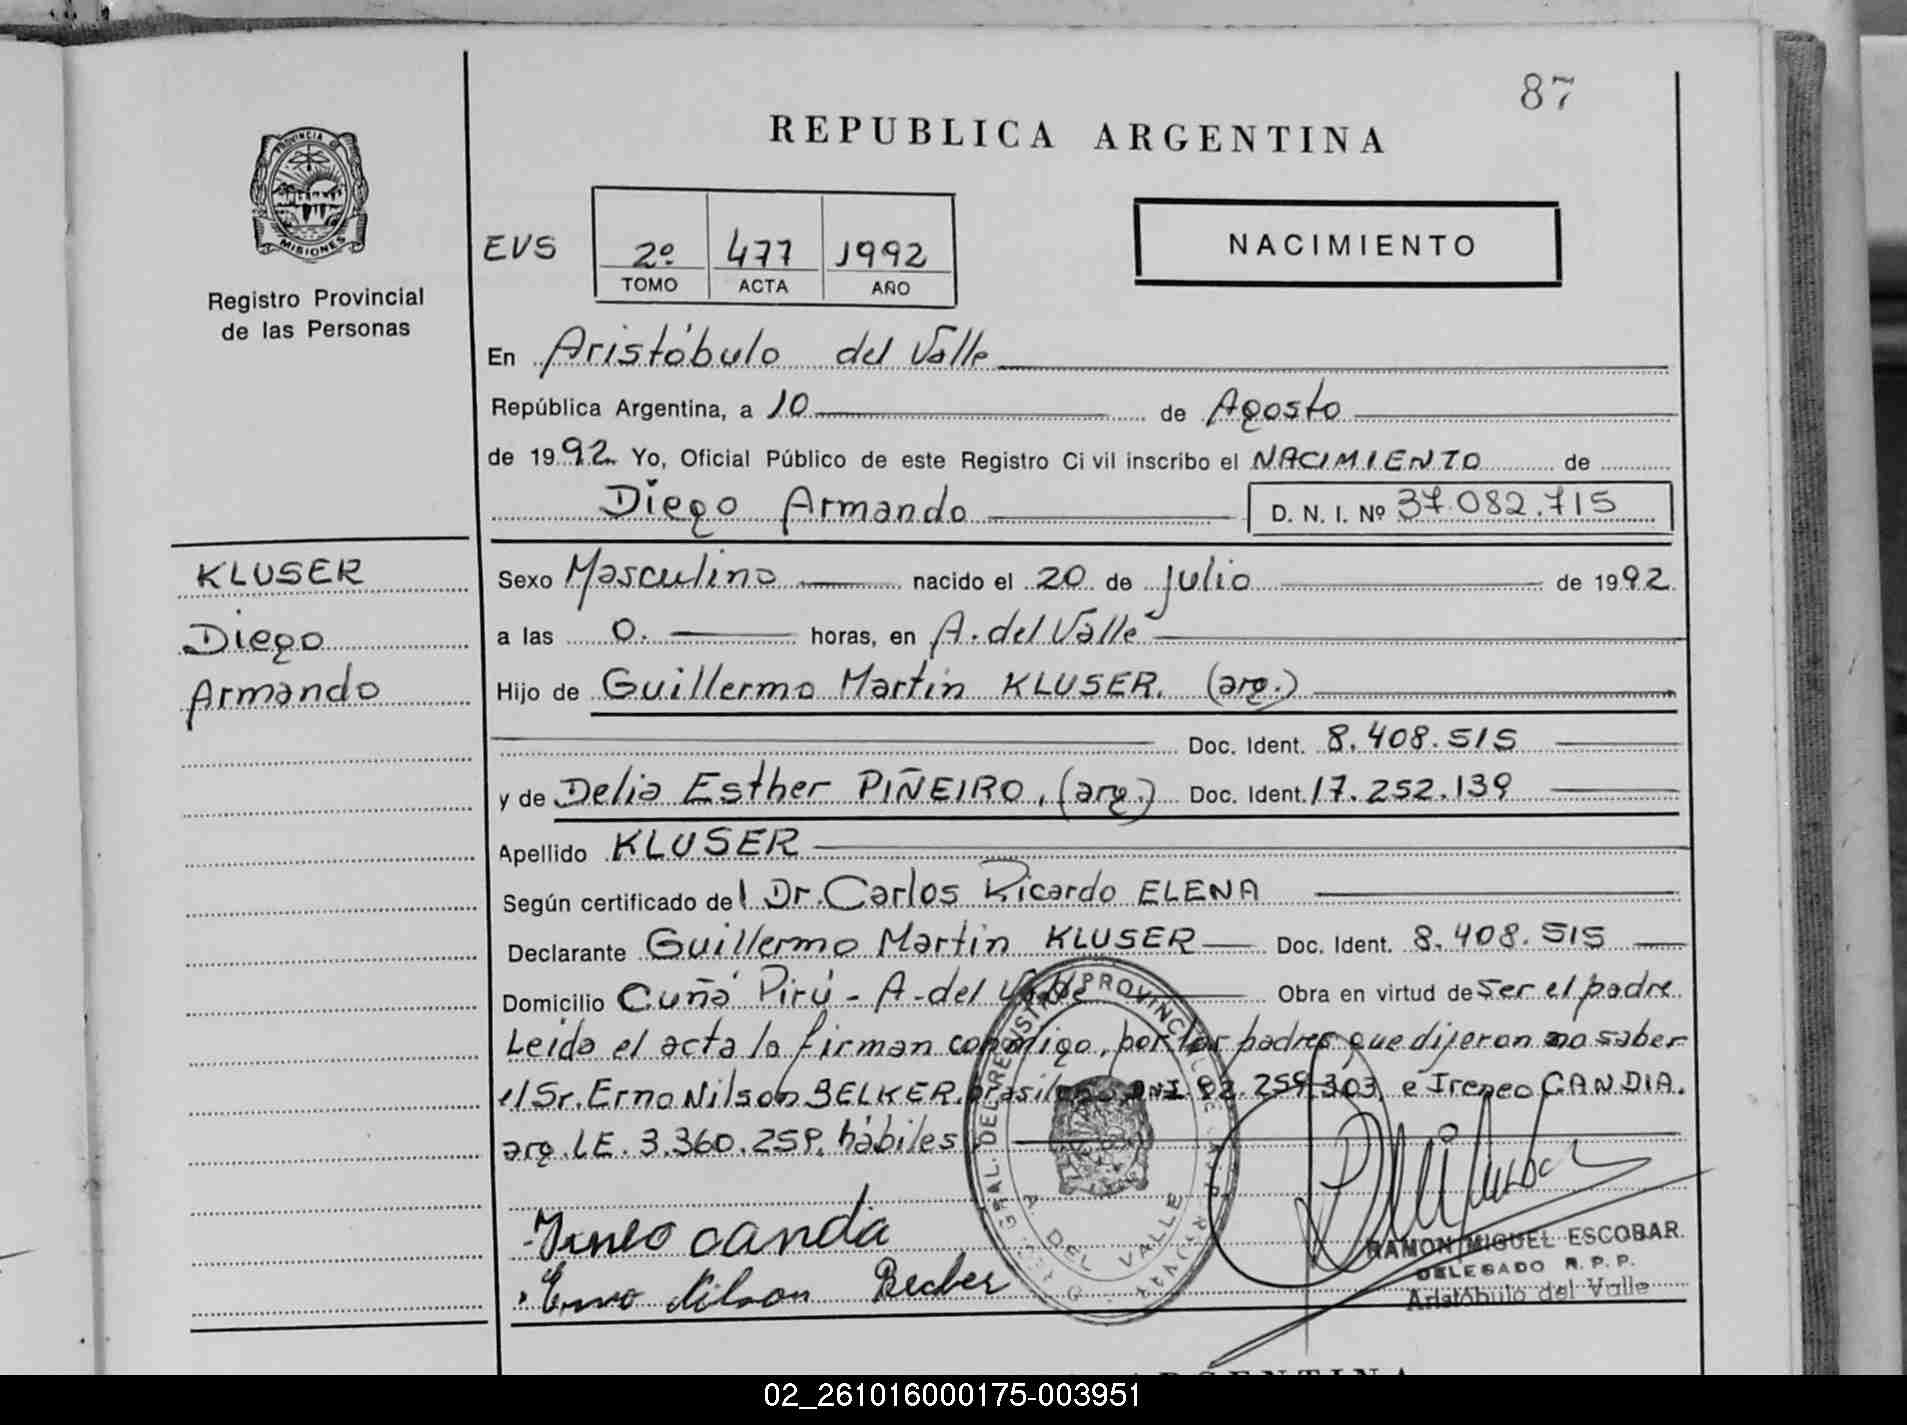 87
REPUBLICA ARGENTINA
PROVINCIA DE
MISIONES
Registro Provincial
de las Personas
EVS
2º 477 1992
TOMO ACTA AÑO
NACIMIENTO
En Aristóbulo del Valle
República Argentina, a 10 de Agosto
de 1992 Yo, Oficial Público de este Registro Civil inscribo el NACIMIENTO de
Diego Armando D. N. I. Nº 37.082.715
KLUSER
Diego
Armando
Sexo Masculino nacido el 20 de Julio de 1992
a las 0. horas, en A. del Valle
Hijo de Guillermo Martin KLUSER. (arg.)
Doc. Ident. 8.408.515
y de Delia Esther PIÑEIRO, (arg.) Doc. Ident. 17.252.139
Apellido KLUSER
Según certificado del Dr. Carlos Ricardo ELENA
Declarante Guillermo Martin KLUSER Doc. Ident. 8.408.515
Domicilio Cuñá Pirú - A-del Valle Obra en virtud de ser el padre
Leida el acta la firman conmigo, por los padres que dijeron no saber
el Sr. Erno Nilson BELKER, brasileño DNI. 92.259.303, e Ireneo CANDIA.
arg. LE. 3.360.259, hábiles
Ireneo canda
Erno Nilson Becber
A. DEL VALLE
RAMON MIGUEL ESCOBAR
DELEGADO R. P. P.
Aristóbulo del Valle
ARGENTINA
02_261016000175-003951